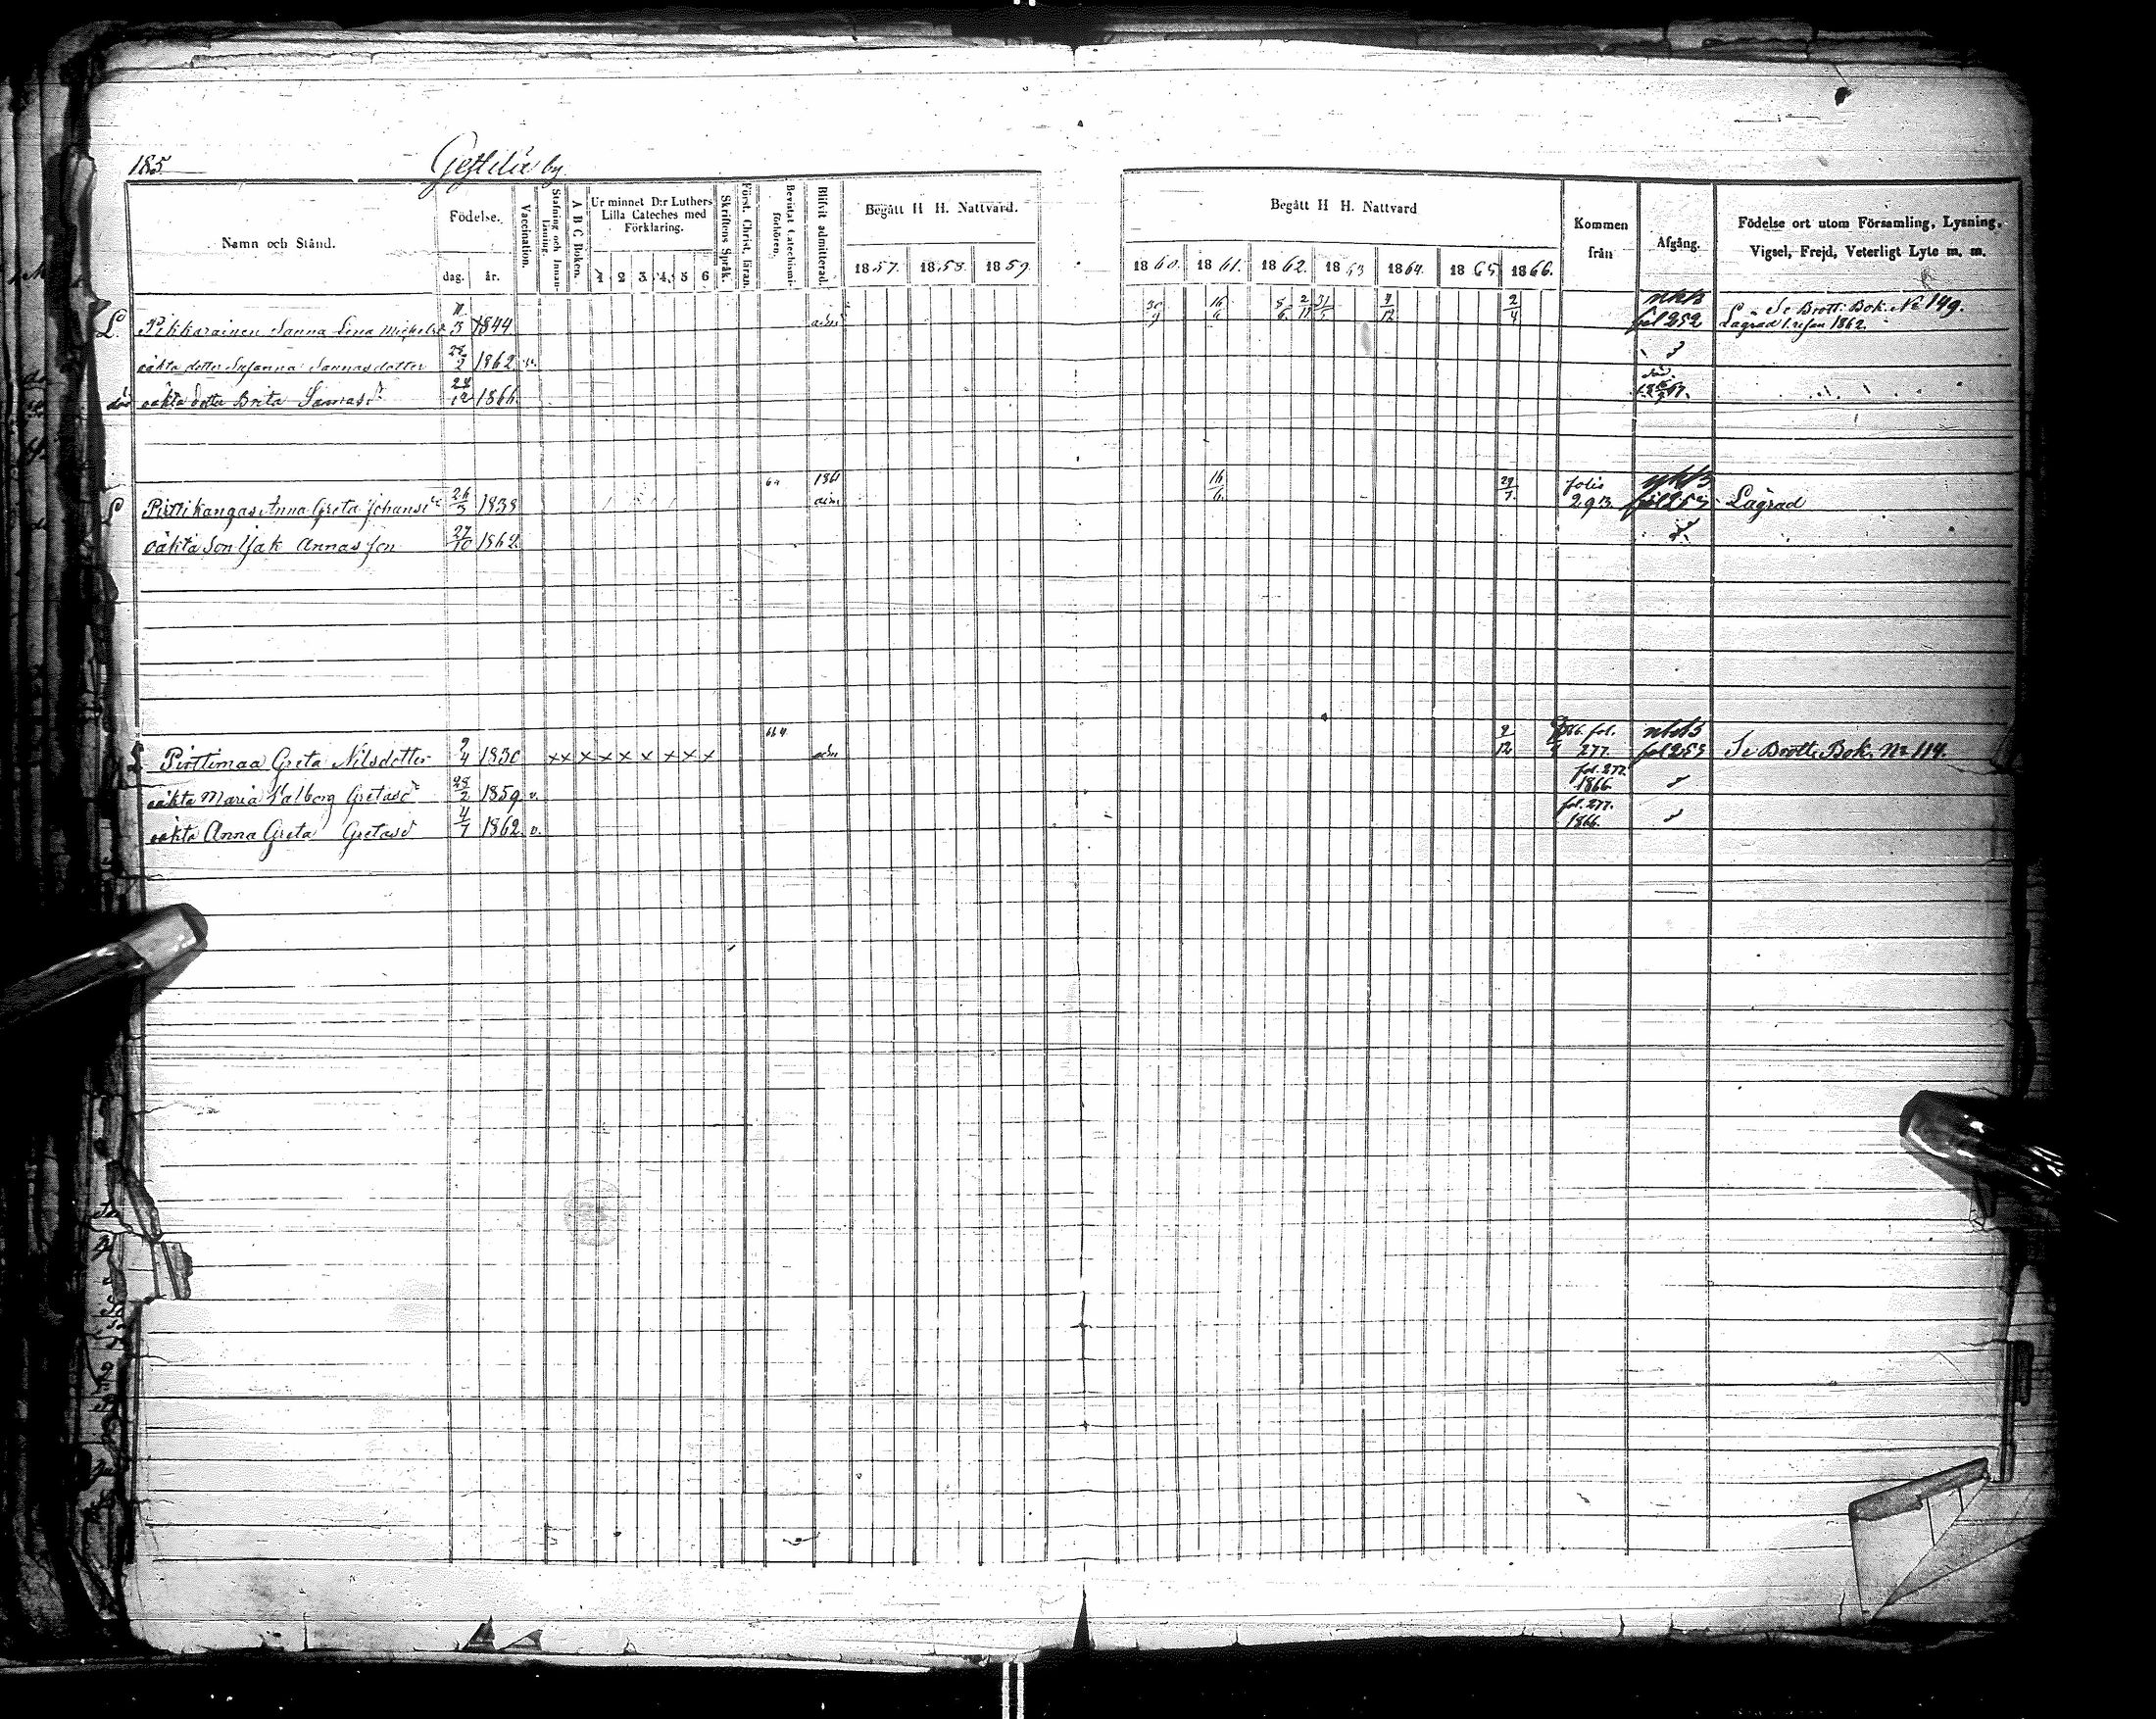 185
by
Namn och Stånd.
Födelse.
dag. år.
Vaccination.
Stafning och Innanläsning.
A B C Boken.
Ur minnet D:r Luthers Lilla Cateches med Förklaring.
1 2 3 4 5 6
Skriftens Språk.
Först. Christ. läran.
Bevistat Catechismi-förhören.
Blifvit admitterad.
Begått H H. Nattvard.
1857. 1858. 1859.
Begått H H. Nattvard
1860. 1861. 1862. 1863 1864. 1865 1866.
Kommen från
Afgång.
Födelse ort utom Församling, Lysning, Vigsel, Frejd, Veterligt Lyte m. m.
L. Pikkarainen Sanna Lena 1844 adm 30/9 16/6 2/11 31/5 2/4 nkB fol 252 Se Brott. Bok. No 149.
Lägrad 1862.
oäkta dotter Susanna Sannasdotter 28/2 1862
oäkta dotter Brita Sannasdr 12 1866
L Pirttikangas Anna Greta Johansdr 26/3 1838 64 1861 adm 16/6 29/7 folio 293. nkB fol 253 Lägrad
oäkta Son Isak Annas son 27/10 1862.
L Pirttimaa Greta Nilsdotter 9/4 1830 x x x x x x x x x adm 9/12 1866. fol. 277. nkB fol 253 Se Brott. Bok. No 114.
oäkta Maria Valborg Gretasdr 28/2 1859 v. fol. 277. 1866.
oäkta Anna Greta Gretasdr 4/7 1862 v. fol. 277. 1866.